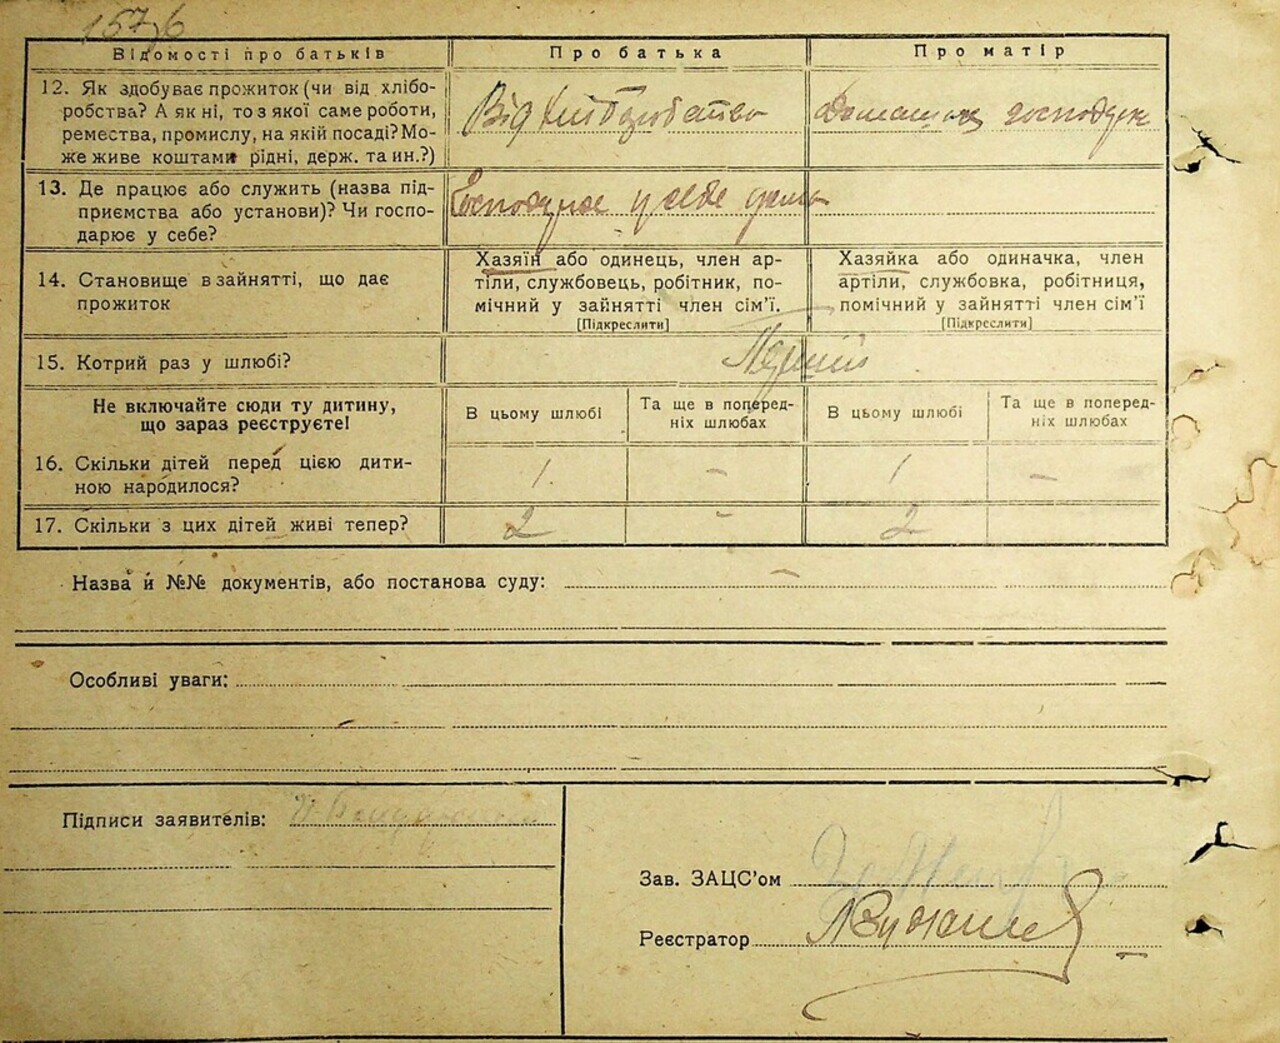 157б
Відомості про батьків
Про батька
Про матір
12. Як здобуває прожиток (чи від хлібо-
робства? А як ні, то з якої саме роботи,
ремества, промислу, на якій посаді? Мо-
же живе коштами рідні, держ. та ин.?)
Від хліборобства
Домашнє господарс
13. Де працює або служить (назва під-
приємства або установи)? Чи госпо-
дарює у себе?
Господарює у себе дома
14. Становище в зайнятті, що дає
прожиток
Хазяїн або одинець, член ар-
тіли, службовець, робітник, по-
мічний у зайнятті член сім'ї.
[Підкреслити]
Хазяйка або одиначка, член
артіли, службовка, робітниця,
помічний у зайнятті член сім'ї
[Підкреслити]
15. Котрий раз у шлюбі?
Перший
Не включайте сюди ту дитину,
що зараз реєструєте!
В цьому шлюбі
Та ще в поперед-
ніх шлюбах
В цьому шлюбі
Та ще в поперед-
ніх шлюбах
16. Скільки дітей перед цією дити-
ною народилося?
1 - 1 -
17. Скільки з цих дітей живі тепер?
2 - 2
Назва й №№ документів, або постанова суду: —
Особливі уваги:
Підписи заявителів:
Зав. ЗАЦС'ом
Реєстратор